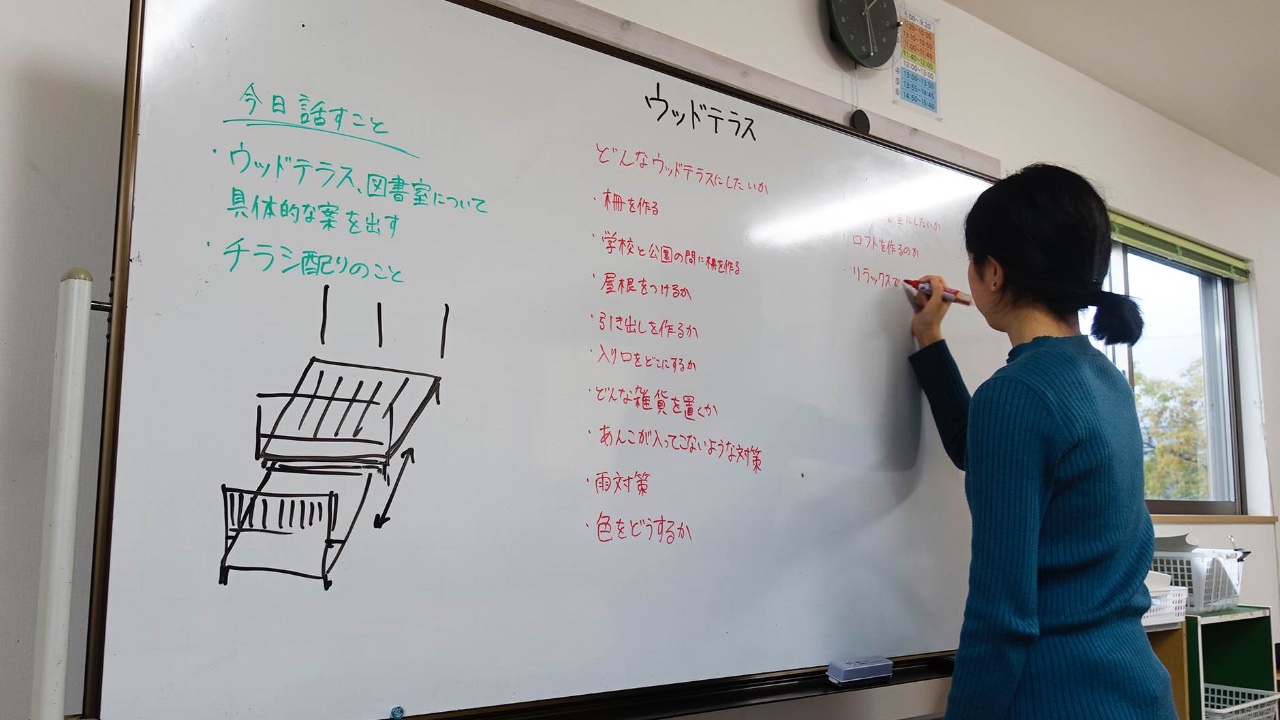 今日話すこと
・ウッドテラス、図書室について
具体的な案を出す
・チラシ配りのこと
ウッドテラス
どんなウッドテラスにしたいか
・柵を作る
・学校と公園の間に柵を作る
・屋根をつけるか
・引き出しを作るか
・入り口をどこにするか
・どんな雑貨を置くか
・あんこが入ってこないような対策
・雨対策
・色をどうするか
にしたいか
・ロフトを作るのか
・リラックスで